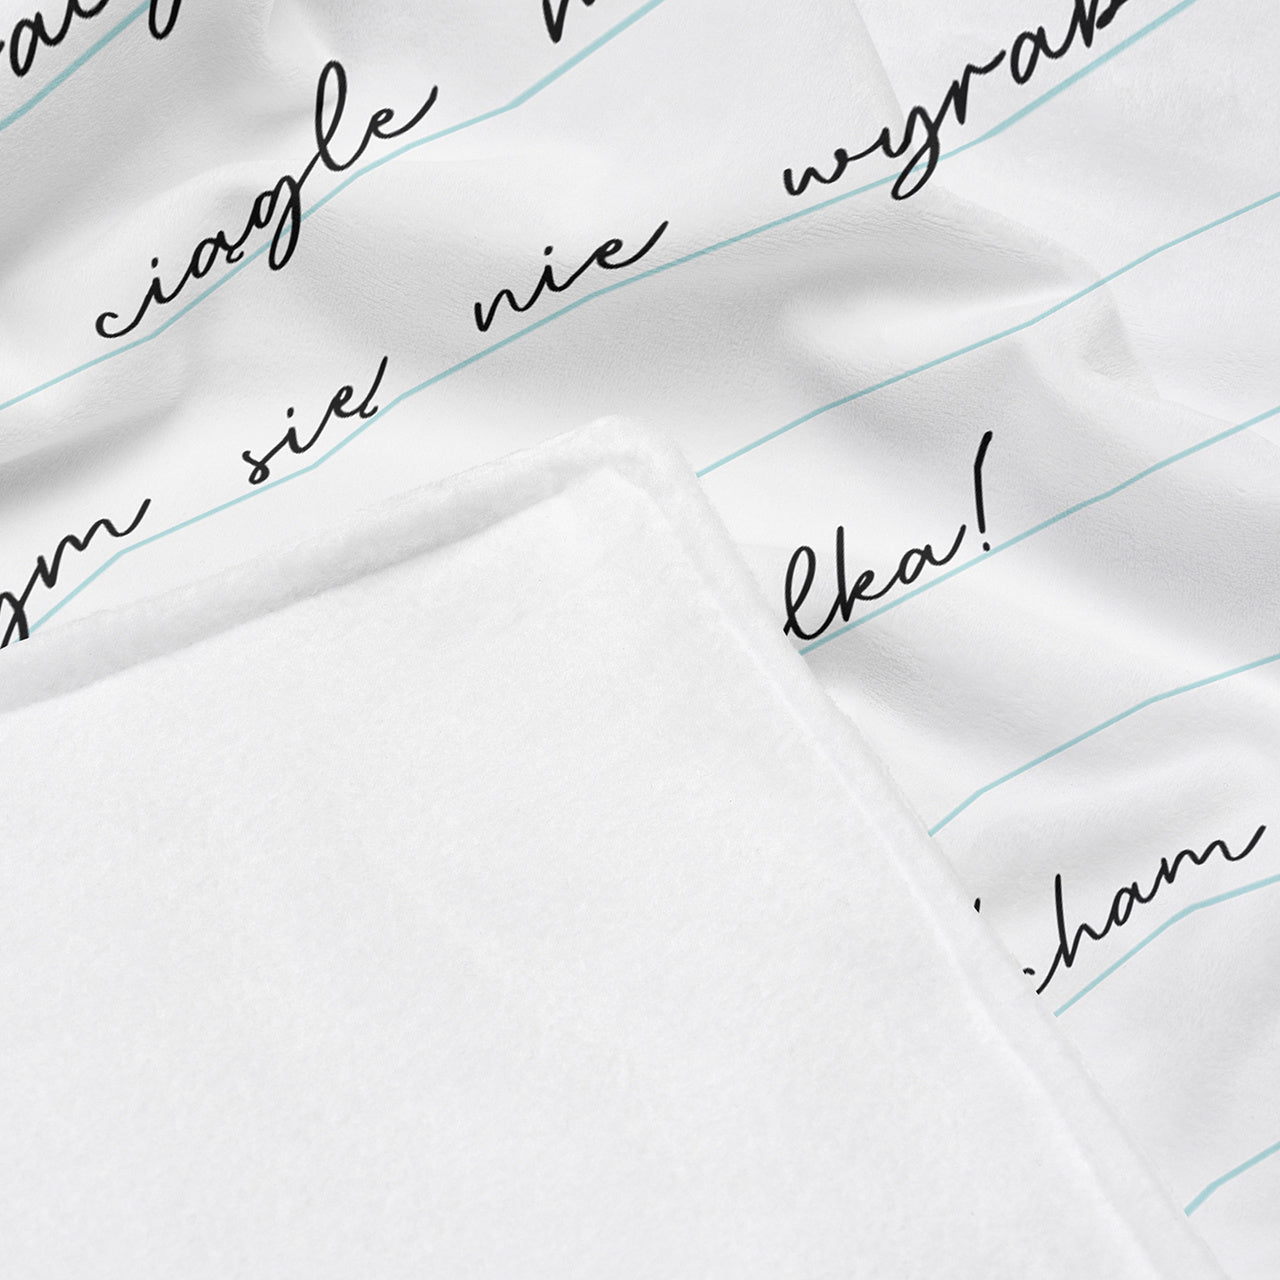 ciągle
się nie wyrab
lka!
ham